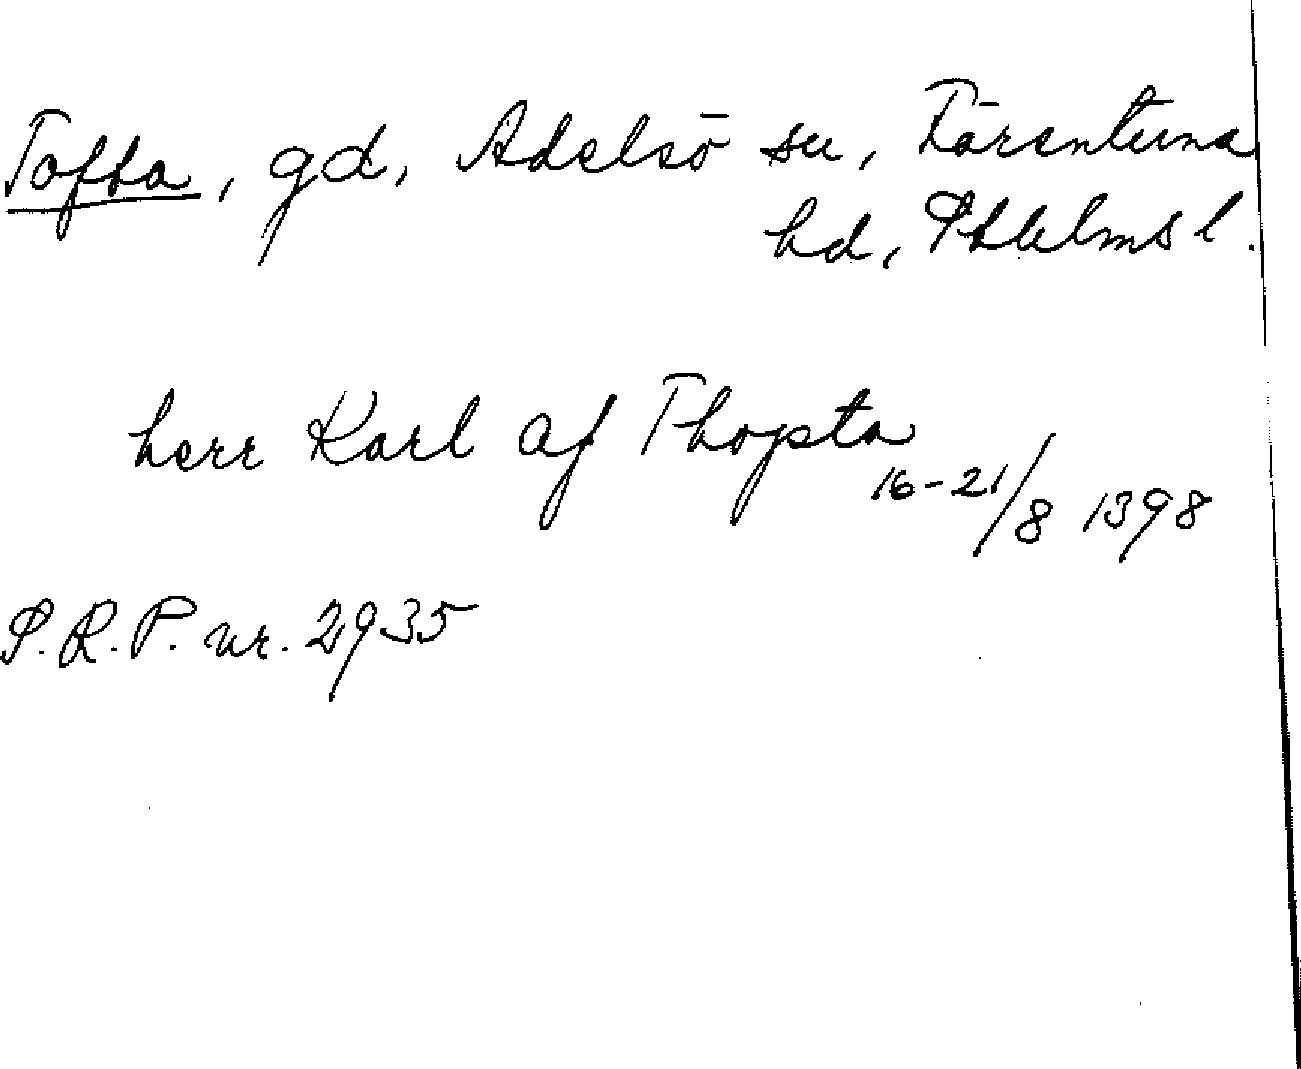 Tofta, gd, Adelsö sn, Färentuna
hd, Sthlms l.
herr Karl af Thopta
16-21/8 1398
S.R.P. nr. 2935